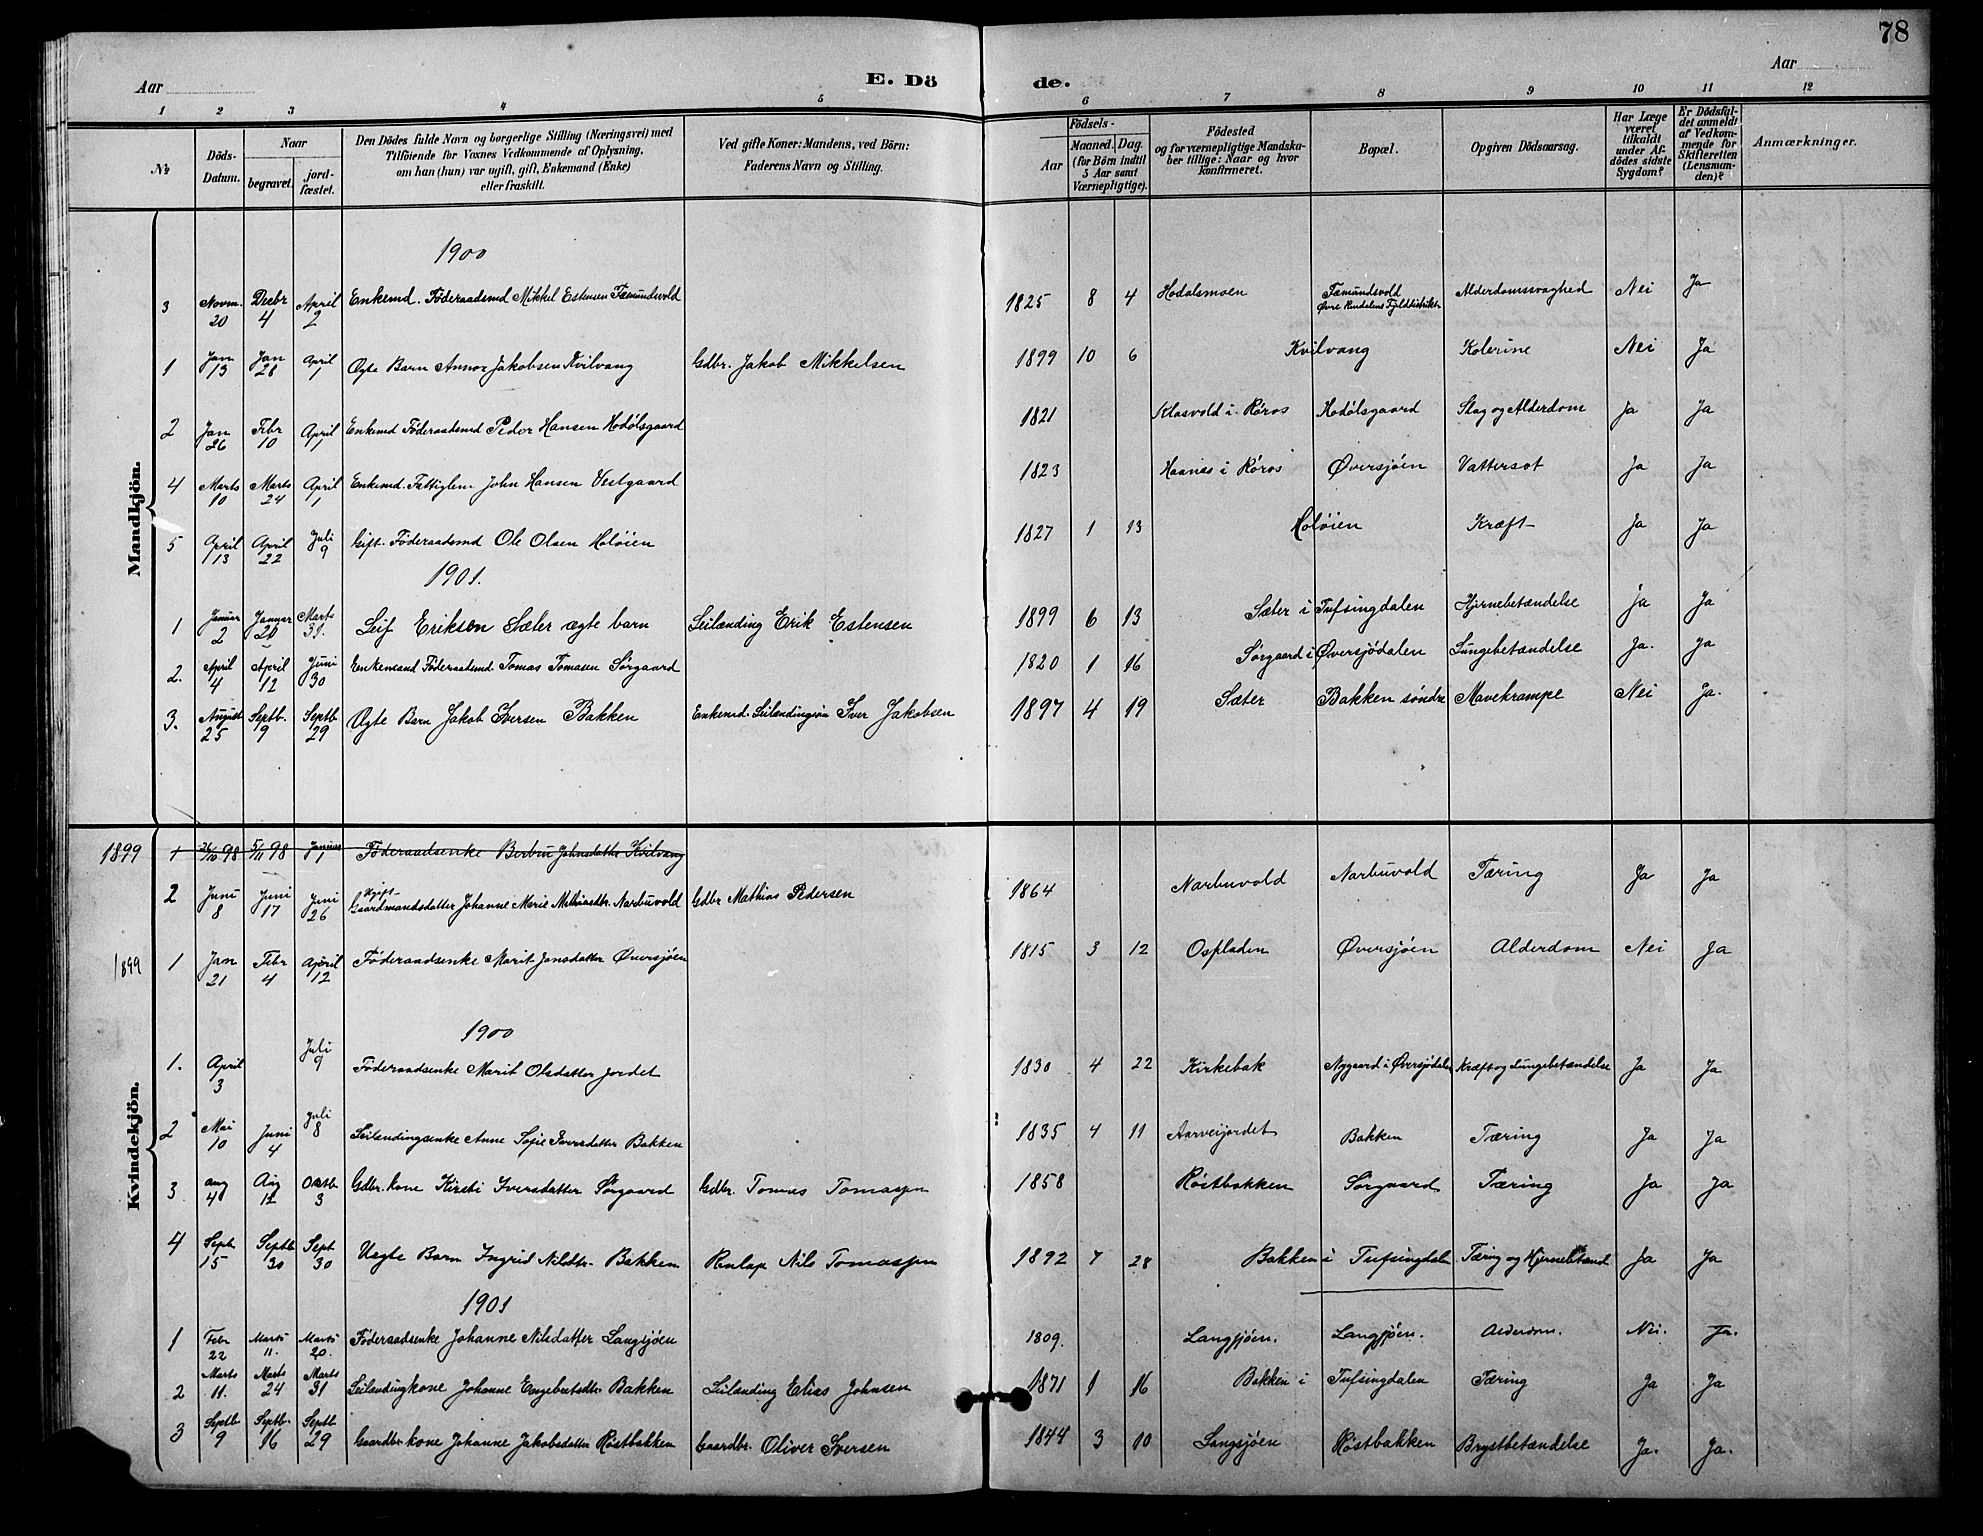 78
Aar
E. Dö
de.
Aar
1 2 3 4 5 6 7 8 9 10 11 12
№ Döds-Datum. Naar begravet. jordfæstet. Den Dödes fulde Navn og borgerlige Stilling (Næringsvei) med Tilföiende for Voxnes Vedkommende af Oplysning, om han (hun) var ugift, gift, Enkemand (Enke) eller fraskilt. Ved gifte Koner: Mandens, ved Börn: Faderens Navn og Stilling. Födsels- Aar Maaned. Dag. (for Börn indtil 5 Aar samt Værnepligtige). Födested og for værnepligtige Mandskaber tillige: Naar og hvor konfirmeret. Bopæl. Opgiven Dödsaarsag. Har Læge været tilkaldt under Afdödes sidste Sygdom? Er Dödsfaldet anmeldt af Vedkommende for Skifteretten (Lensmanden)? Anmærkninger.
Mandkjön.
1900
3 Novm. 20 Decbr 4 April 2 Enkemd. Föderaadsmd Mikkel Estensen Fæmundsvold 1825 8 4 Hodalsmoen Fæmundsvold Øvre Rendalens Fjelddistrikt Alderdomssvaghed Nei Ja
1 Jan 13 Jan 28 April 1 Ægte Barn Annar Jakobsen Kvilvang Gdbr. Jakob Mikkelsen 1899 10 6 Kvilvang Kolerine Nei Ja
2 Jan 26 Febr 10 April 1 Enkemd Föderaadsmd Peder Hansen Hodölsgaard 1821 Klasvold i Røros Hodölsgaard Slag og Alderdom Ja Ja
4 Marts 10 Marts 24 April 1 Enkemd. Fattiglem John Hansen Vestgaard 1823 Haanæs i Røros Øversjöen Vattersot Ja Ja
5 April 13 April 22 Juli 9 Gift. Föderaadsmd Ole Olsen Holöien 1827 1 13 Holöien Kræft Ja Ja
1901.
1 Januar 2 Januar 20 Marts 31. Leif Eriksen Sæter ægte barn Leilænding Erik Estensen 1899 6 13 Sæter i Tufsingdalen Hjernebetændelse Ja Ja
2. April 4 April 12 Juni 30 Enkemand Föderaadsmd. Tomas Tomasen Sörgaard 1820 1 16 Sörgaard i Øversjödalen Lungebetændelse Ja. Ja
3. August 25 Septb. 9 Septb 29 Ægte Barn Jakob Iversen Bakken Enkemd. Leilændingsön Iver Jakobsen 1897 4 19 Sæter Bakken söndre Mavekrampe Nei Ja.
Kvindekjön.
1899 1 26/10 98 5/11 98 Januar 1 Föderaadsenke Berbru Johnsdatter Kvilvang
2 Juni 8 Juni 17 Juni 26 Ugift Gaardmandsdatter Johanne Marie Mathiasdtr. Narbuvold Gdbr Mathias Pedersen 1864 Narbuvold Narbuvold Tæring Ja Ja
1899 1 Jan 21 Febr 4 April 12 Föderaadsenke Marit Jonsdatter Øversjöen 1815 3 12 Ospladen Øversjöen Alderdom Nei Ja
1900
1. April 3 Juli 9 Föderaadsenke Marit Olsdatter Jordet 1830 4 22 Kirkebak Nygaard i Øversjödalen Kræft og Lungebetændelse Ja Ja
2 Mai 10 Juni 4 Juli 8 Leilændingsenke Anne Sofie Iversdatter Bakken 1835 4 11 Aarveijordet Bakken Tæring Ja Ja
3 Aug 4 Aug 12 Oktb 3 Gdbr. kone Kirsti Iversdatter Sörgaard Gdbr. Tomas Tomasen 1858 Röstbakken Sörgaard Tæring Ja Ja
4 Sept. 15 Septb 30 Sept 30 Uægte Barn Ingrid Nilsdtr. Bakken Renlap Nils Tomassen 1892 7 28 Bakken i Tufsingdalen Tæring og Hjernebetænd Ja Ja
1901
1 Febr 22 Marts 11. Marts 20. Föderaadsenke Johanne Nilsdatter Langsjöen 1809. Langsjöen. Langsjöen. Alderdom. Nei. Ja.
2 Marts 11. Marts 24 Marts 31 Leilændingkone Johanne Engebretsdtr. Bakken Leilænding Elias Johnsen 1871 1 16 Bakken i Tufsingdalen Tæring Ja Ja
3 Septb 9 Septb. 16 Septb 29 Gaardbr. kone Johanne Jakobsdatter Röstbakken Gaardbr. Oliver Iversen 1844 3 10 Langsjöen Röstbakken Brystbetændelse Ja. Ja.